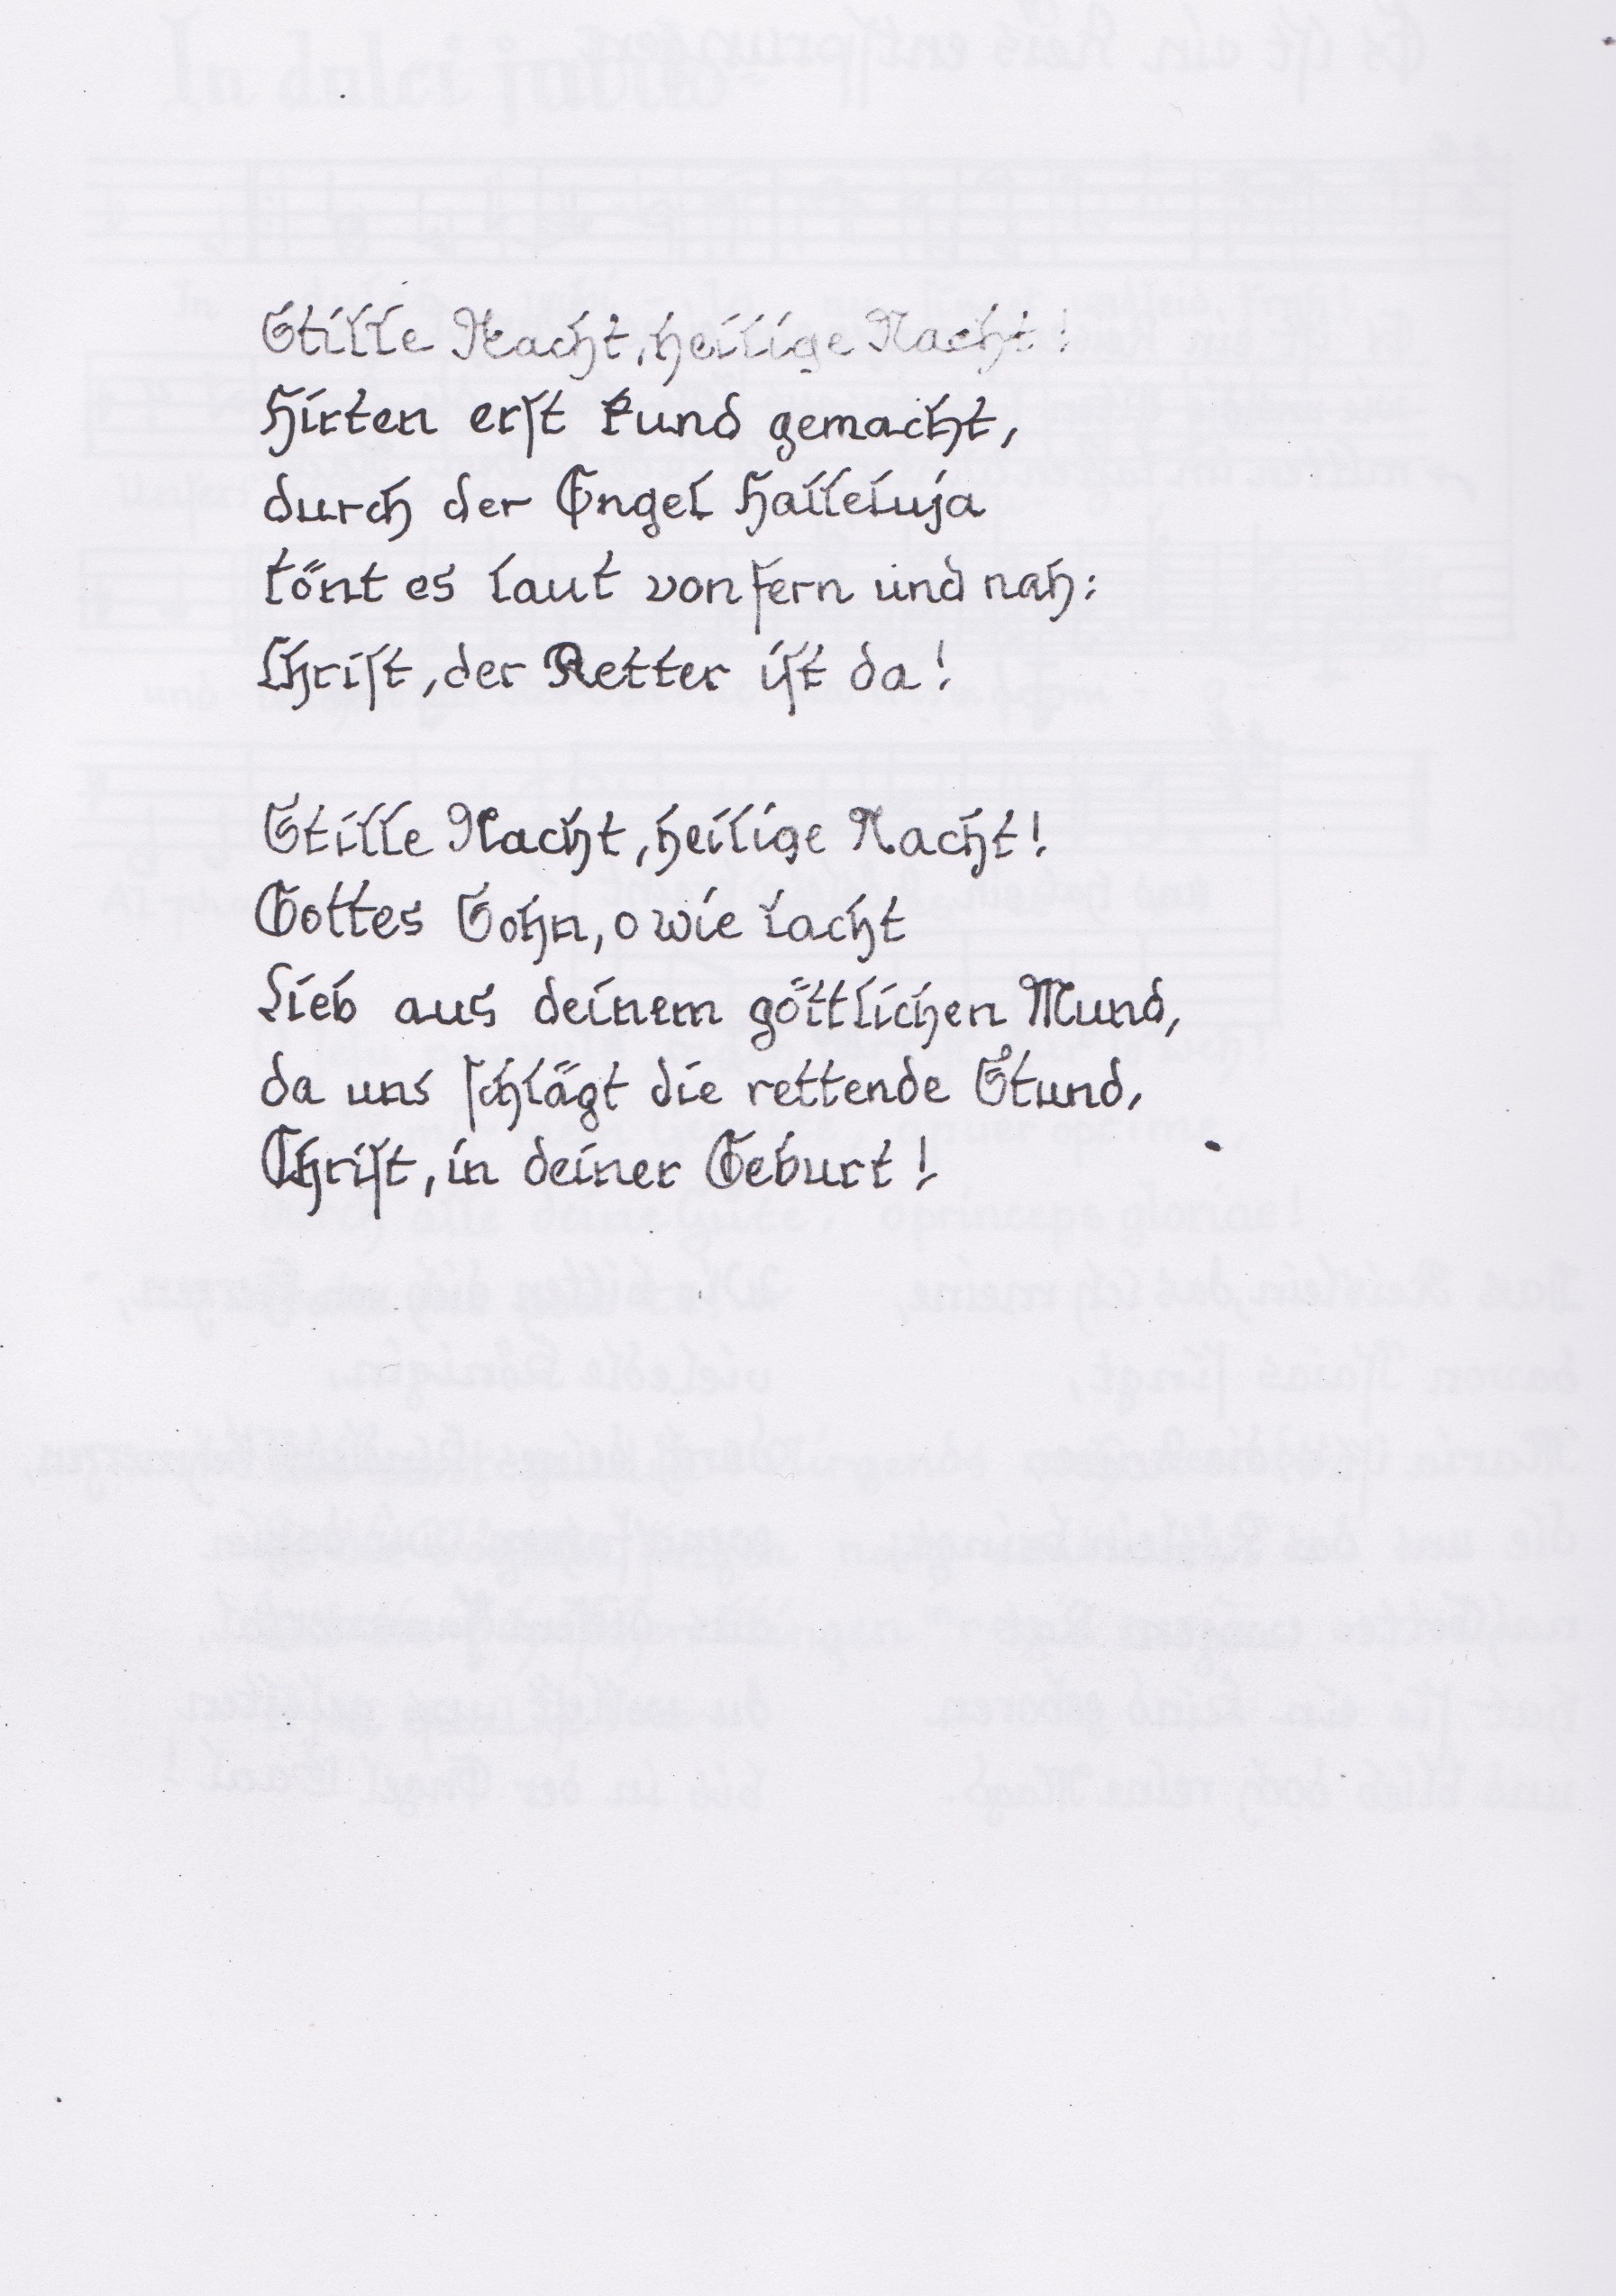 Stille Nacht, heilige Nacht!
Hirten erſt kund gemacht,
durch der Engel Halleluja
tönt es laut von fern und nah:
Chriſt, der Retter iſt da!
Stille Nacht, heilige Nacht!
Gottes Sohn, o wie lacht
Lieb aus deinem göttlichen Mund,
da uns ſchlägt die rettende Stund,
Chriſt, in deiner Geburt!